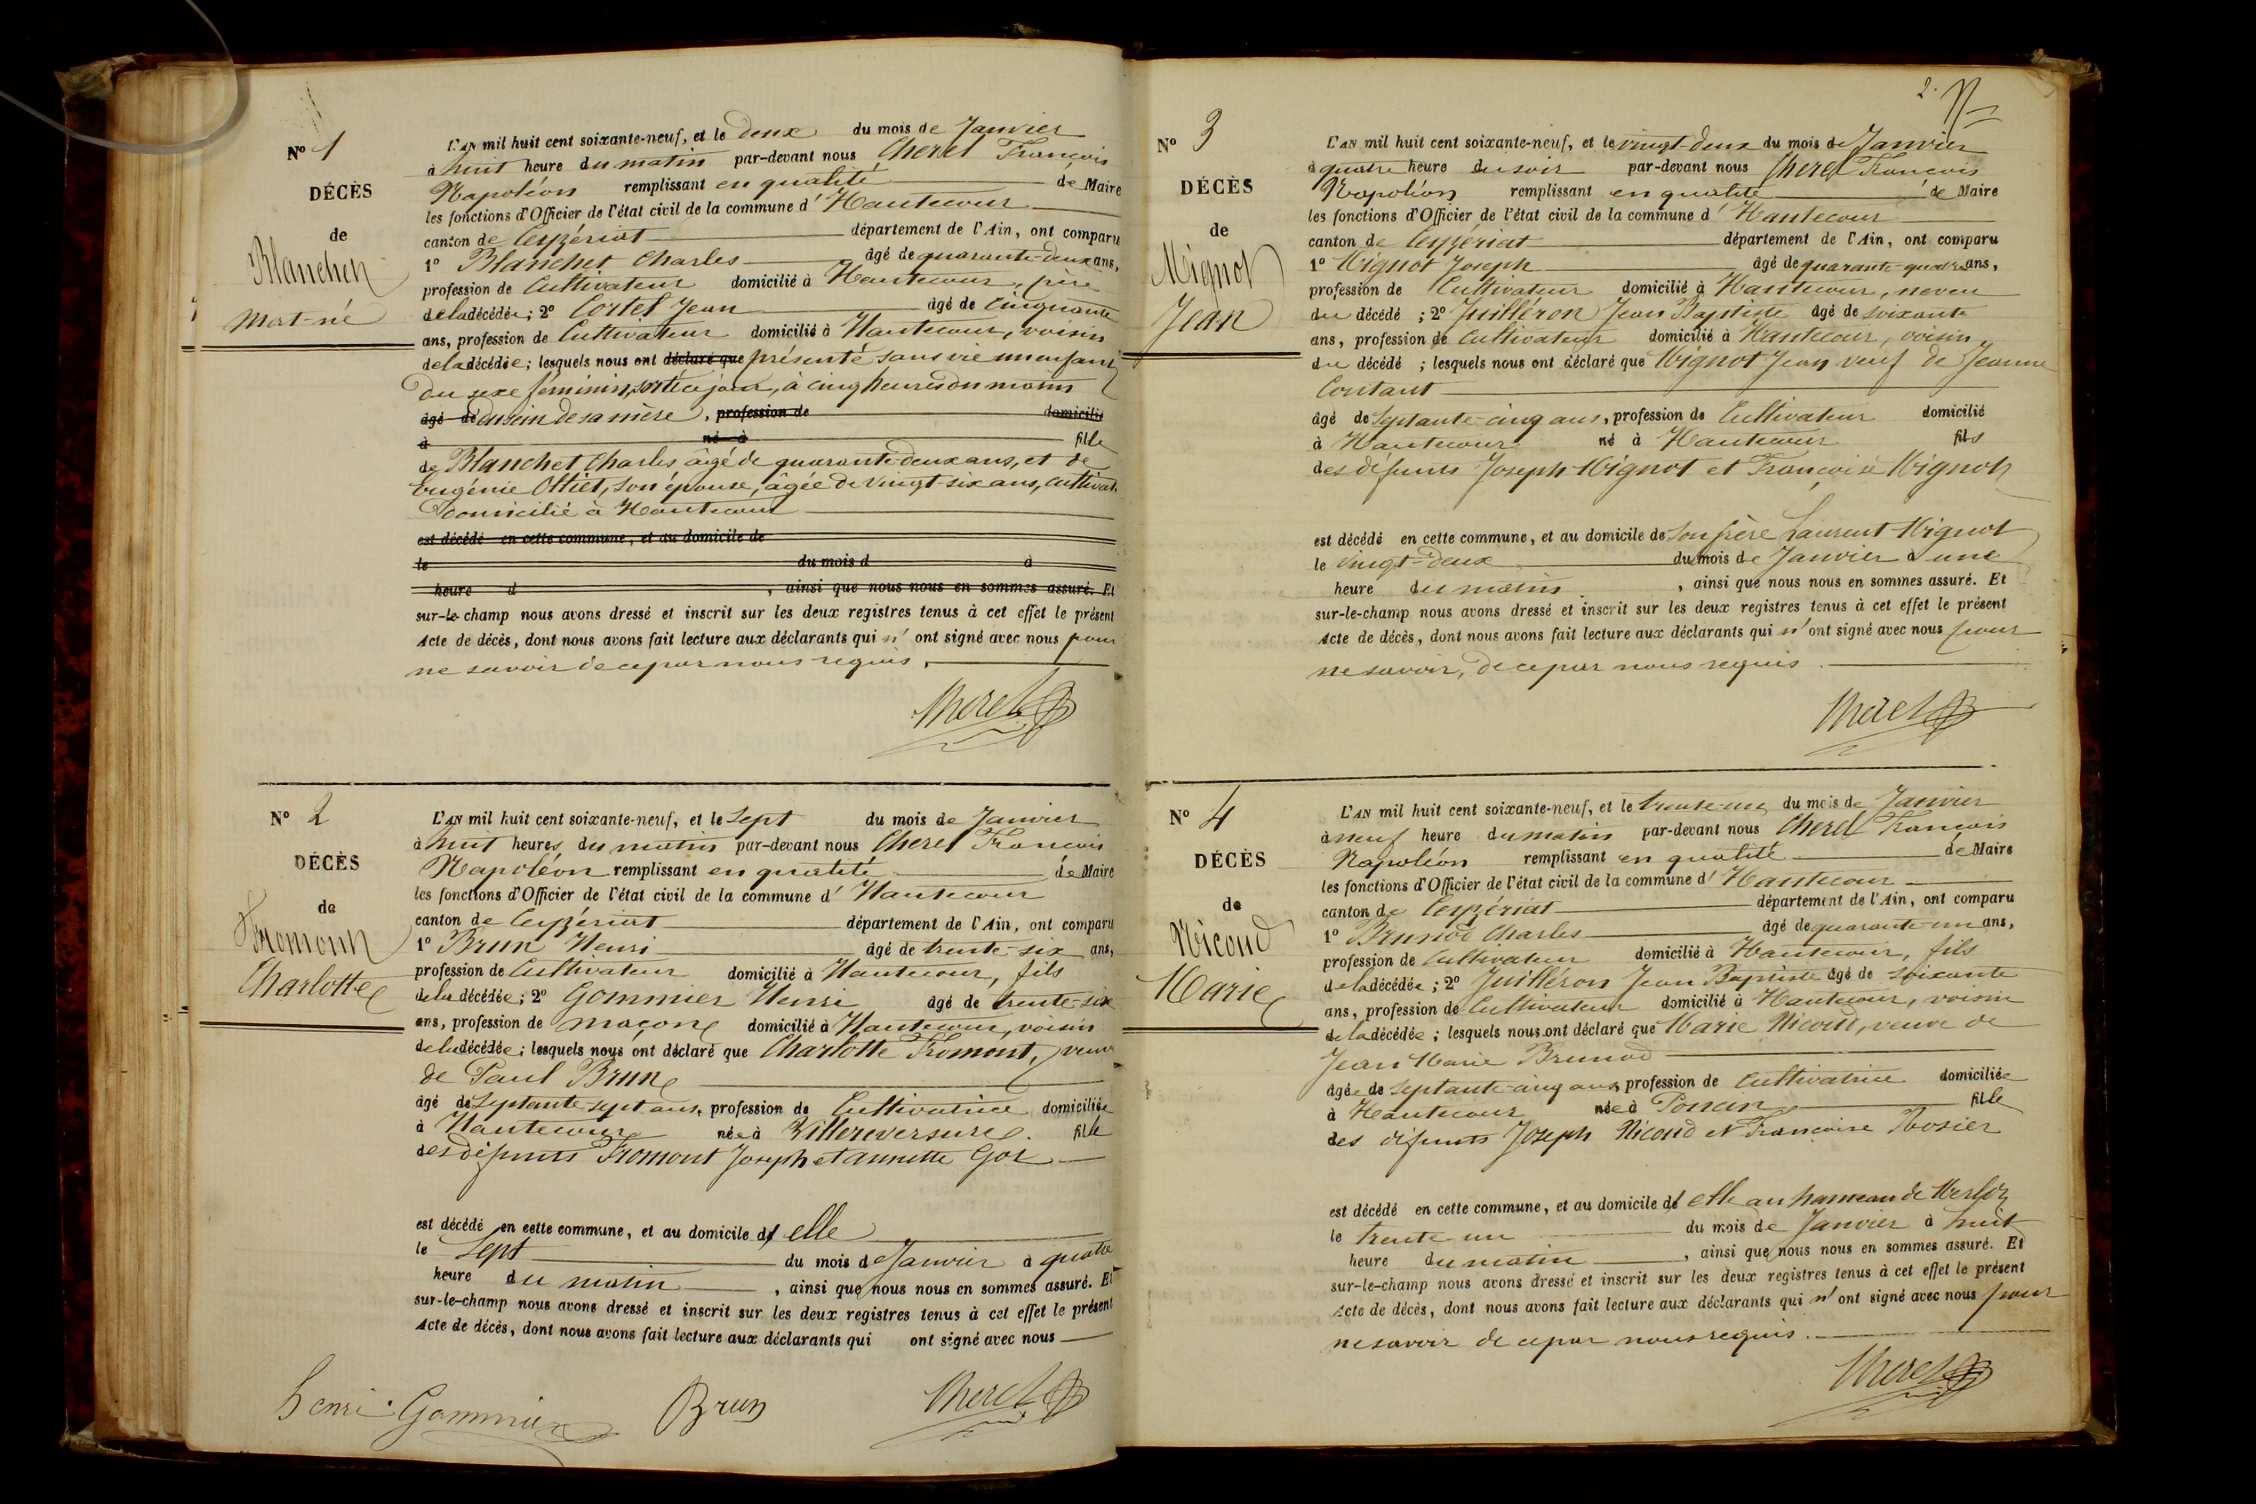 Nº 1
DÉCÈS
de
Blanchet
Mort-né
L'AN mil huit cent soixante-neuf, et le deux du mois de Janvier
à huit heure du matin par-devant nous Cheret François
Napoléon remplissant en qualité de Maire
les fonctions d'Officier de l'état civil de la commune d'Hautecour
canton de Ceyzériat département de l'Ain, ont comparu
1º Blanchet Charles âgé de quarante-deux ans,
profession de Cultivateur domicilié à Hautecour, père
de la décédée; 2º Cortet Jean âgé de cinquante
ans, profession de Cultivateur domicilié à Hautecour, voisin
de la décédée; lesquels nous ont déclaré que présenté sans vie un enfant
du sexe féminin, sorti ce jour, à cinq heures du matin
âgé de du sein de sa mère, profession de domicilié
à né à fille
de Blanchet Charles âgé de quarante deux ans, et de
Eugénie Ottiet, son épouse, âgée de vingt-six ans, cultivat
domicilié à Hautecour
est décédé en cette commune, et au domicile de
le du mois d à
heure d , ainsi que nous nous en sommes assuré. Et
sur-le-champ nous avons dressé et inscrit sur les deux registres tenus à cet effet le présent
Acte de décès, dont nous avons fait lecture aux déclarants qui n'ont signé avec nous pour
ne savoir de ce par nous requis.
Cheret
Nº 2
DÉCÈS
de
Fromont
Charlotte
L'AN mil huit cent soixante-neuf, et le sept du mois de Janvier
à huit heures du matin par-devant nous Cheret François
Napoléon remplissant en qualité de Maire
les fonctions d'Officier de l'état civil de la commune d'Hautecour
canton de Ceyzériat département de l'Ain, ont comparu
1º Brun Henri âgé de trente-six ans,
profession de Cultivateur domicilié à Hautecour, fils
de la décédée; 2º Gommier Henri âgé de trente-six
ans, profession de maçon domicilié à Hautecour, voisin
de la décédée; lesquels nous ont déclaré que Charlotte Fromont, veuve
de Paul Brun
âgé de septante sept ans, profession de Cultivatrice domiciliée
à Hautecour née à Villereversure. fille
des défunts Fromont Joseph et annette Gol
est décédé en cette commune, et au domicile d'elle
le Sept du mois de Janvier à quatre
heure du matin , ainsi que nous nous en sommes assuré. Et
sur-le-champ nous avons dressé et inscrit sur les deux registres tenus à cet effet le présent
Acte de décès, dont nous avons fait lecture aux déclarants qui ont signé avec nous
henri Gommier Brun Cheret
2.
Nº 3
DÉCÈS
de
Mignot
Jean
L'AN mil huit cent soixante-neuf, et le vingt-deux du mois de Janvier
à quatre heure du soir par-devant nous Cheret François
Napoléon remplissant en qualité de Maire
les fonctions d'Officier de l'état civil de la commune d'Hautecour
canton de Ceyzériat département de l'Ain, ont comparu
1º Mignot Joseph âgé de quarante-quatre ans,
profession de Cultivateur domicilié à Hautecour, neveu
du décédé ; 2º Juilléron Jean Baptiste âgé de soixante
ans, profession de Cultivateur domicilié à Hautecour, voisin
du décédé ; lesquels nous ont déclaré que Mignot Jean veuf de Jeanne
Contant
âgé de septante-cinq ans, profession de Cultivateur domicilié
à Hautecour né à Hautecour fils
des défunts Joseph Mignot et Françoise Mignot
est décédé en cette commune, et au domicile de son frère Laurent Mignot
le vingt-deux du mois de Janvier à une
heure du matin , ainsi que nous nous en sommes assuré. Et
sur-le-champ nous avons dressé et inscrit sur les deux registres tenus à cet effet le présent
Acte de décès, dont nous avons fait lecture aux déclarants qui n'ont signé avec nous pour
ne savoir, de ce par nous requis.
Cheret
Nº 4
DÉCÈS
de
Nicoud
Marie
L'AN mil huit cent soixante-neuf, et le trente-un du mois de Janvier
à neuf heure du matin par-devant nous Cheret François
Napoléon remplissant en qualité de Maire
les fonctions d'Officier de l'état civil de la commune d'Hautecour
canton de Ceyzériat département de l'Ain, ont comparu
1º Brunod Charles âgé de quarante-un ans,
profession de Cultivateur domicilié à Hautecour, fils
de la décédée; 2º Juilléron Jean Baptiste âgé de soixante
ans, profession de Cultivateur domicilié à Hautecour, voisin
de la décédée; lesquels nous ont déclaré que Marie Nicoud, veuve de
Jean Marie Brunod
âgée de septante-cinq ans, profession de Cultivatrice domiciliée
à Hautecour née à Poncin fille
des défunts Joseph Nicoud et Françoise Rosier
est décédé en cette commune, et au domicile d'elle au hameau de Merloz
le trente-un du mois de Janvier à huit
heure du matin , ainsi que nous nous en sommes assuré. Et
sur-le-champ nous avons dressé et inscrit sur les deux registres tenus à cet effet le présent
Acte de décès, dont nous avons fait lecture aux déclarants qui n'ont signé avec nous pour
ne savoir de ce par nous requis.
Cheret